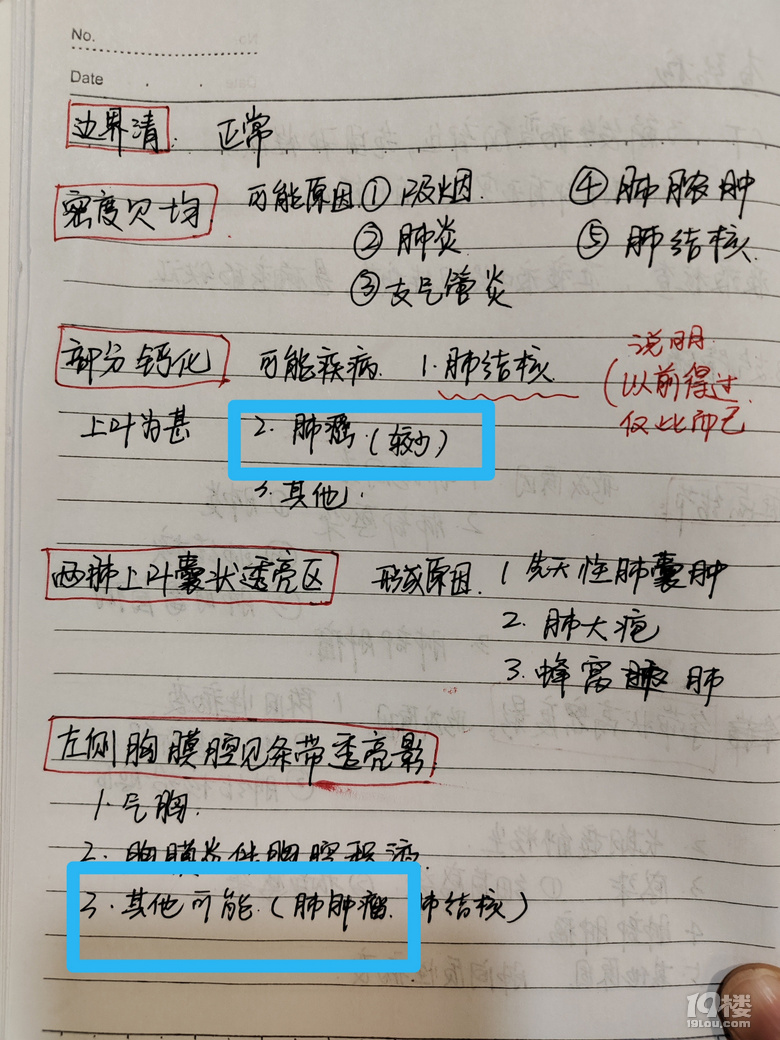 No.
Date
边界清: 正常
密度欠均 可能原因 ① 吸烟. ④ 肺脓肿
② 肺炎 ⑤ 肺结核.
③ 支气管炎
部分钙化 可能疾病. 1. 肺结核. 说明
(以前得过
仅此而已
上叶为甚 2. 肺癌. (较少)
3. 其他.
两肺上叶囊状透亮区 形成原因. 1 先天性肺囊肿
2. 肺大疱
3. 蜂窝肺
左侧胸膜腔见条带透亮影
1. 气胸.
2. 胸膜炎伴胸腔积液.
3. 其他可能. (肺肿瘤. 肺结核)
19楼
19lou.com